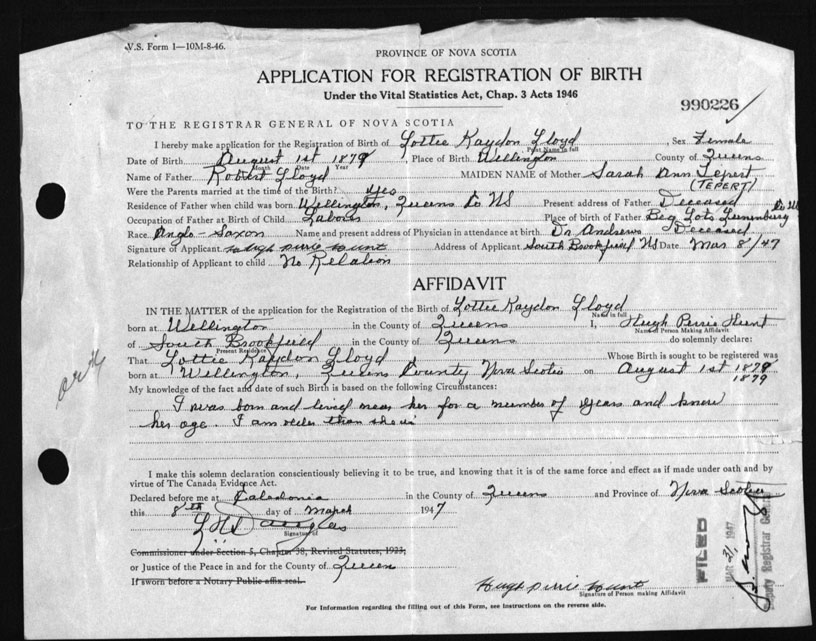 V.S. Form 1—10M-8-46.
PROVINCE OF NOVA SCOTIA
APPLICATION FOR REGISTRATION OF BIRTH
Under the Vital Statistics Act, Chap. 3 Acts 1946
990226
TO THE REGISTRAR GENERAL OF NOVA SCOTIA
I hereby make application for the Registration of Birth of Lottie Kaydon Lloyd, Sex Female
Print Name in full
Date of Birth August 1st 1879 Place of Birth Wellington County of Queens
Month Date Year
Name of Father Robert Lloyd MAIDEN NAME of Mother Sarah Ann Tepert
(TEPERT)
Were the Parents married at the time of the Birth? yes
Residence of Father when child was born Wellington, Queens Co NS Present address of Father Deceased
Occupation of Father at Birth of Child Labour Place of birth of Father Beg Lots Lunenburg Co NS
Race Anglo-Saxon Name and present address of Physician in attendance at birth Dr Andrews Deceased
Signature of Applicant Hugh Pirrie Hunt Address of Applicant South Brookfield NS Date Mar 8/47
Relationship of Applicant to child No Relation
AFFIDAVIT
IN THE MATTER of the application for the Registration of the Birth of Lottie Kaydon Lloyd
Name in full
born at Wellington in the County of Queens I, Hugh Pirrie Hunt
Name of Person Making Affidavit
of South Brookfield in the County of Queens do solemnly declare:
Present Residence
That Lottie Kaydon Lloyd Whose Birth is sought to be registered was
born at Wellington, Queens County Nova Scotia on August 1st 1879
1879
My knowledge of the fact and date of such Birth is based on the following Circumstances:
I was born and lived near her for a number of years and know
her age. I am older than she is
I make this solemn declaration conscientiously believing it to be true, and knowing that it is of the same force and effect as if made under oath and by
virtue of The Canada Evidence Act.
Declared before me at Caledonia in the County of Queens and Province of Nova Scotia
this 8th day of March 1947
Signature of
Commissioner under Section 5, Chapter 38, Revised Statutes, 1923,
or Justice of the Peace in and for the County of Queen
If sworn before a Notary Public affix seal.
Hugh Pirrie Hunt
Signature of Person making Affidavit
For Information regarding the filling out of this Form, see Instructions on the reverse side.
FILED
MAR 21 1947
Deputy Registrar General